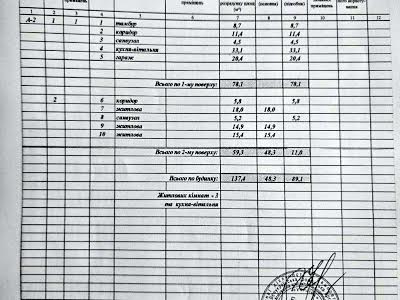 приміщень розрахунку площі (основна) (підсобна) приміщень
(м²)
1 2 3 4 5 6 7 8 9 10 11 12
А-2 1 1 1 тамбур 8,7 8,7
2 коридор 11,4 11,4
3 санвузол 4,5 4,5
4 кухня-вітальня 33,1 33,1
5 гараж 20,4 20,4
Всього по 1-му поверху: 78,1 78,1
2 6 коридор 5,8 5,8
7 житлова 18,0 18,0
8 санвузол 5,2 5,2
9 житлова 14,9 14,9
10 житлова 15,4 15,4
Всього по 2-му поверху: 59,3 48,3 11,0
Всього по будинку: 137,4 48,3 89,1
Житлових кімнат - 3
та кухня-вітальня